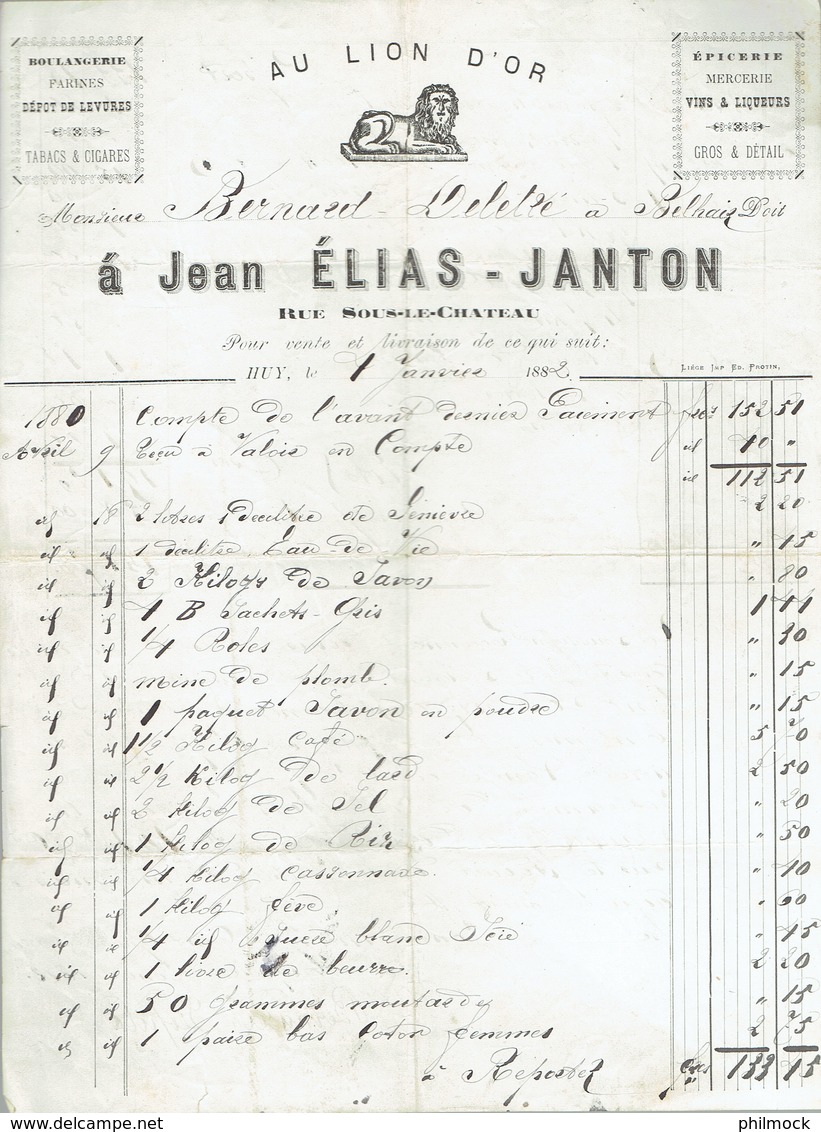 BOULANGERIE
FARINES
DÉPOT DE LEVURES
TABACS & CIGARES
AU LION D'OR
ÉPICERIE
MERCERIE
VINS & LIQUEURS
GROS & DÉTAIL
Monsieur Bernard-Deletré à Belhaiz Doit
á Jean ÉLIAS - JANTON
RUE SOUS-LE-CHATEAU
Pour vente et livraison de ce qui suit:
HUY, le 1 Janvier 1882
LIÉGE IMP ED. PROTIN,
1880 Compte de l'avant dernier Paiement frcs 152 51
Avril 9 Reçu à Valoir en Compte id 40 "
id 112 51
id 18 2 litres 1 decilitre de Genievre 2 20
id id 1 decilitre Eau-de Vie " 15
id id 2 Kilogs de Savon " 80
id id 1 B Sachets-Gris 1 41
id id 1/4 Roles " 30
id id mine de plomb. " 15
id id 1 paquet Savon en poudre " 15
id id 1 1/2 Kilog café 5 70
id id 2 1/2 Kilog de lard 2 50
id id 2 Kilog de Sel " 20
id id 1 Kilog de Riz " 50
id id 1/4 Kilog cassonnade. " 40
id id 1 Kilog fève " 60
id id 1/4 id Sucre blanc Scié " 45
id id 1 livre de beurre. 2 20
id id 50 grammes moutarde " 15
id id 1 paire bas coton femmes 2 75
à Reporter frcs 133 15
philmock